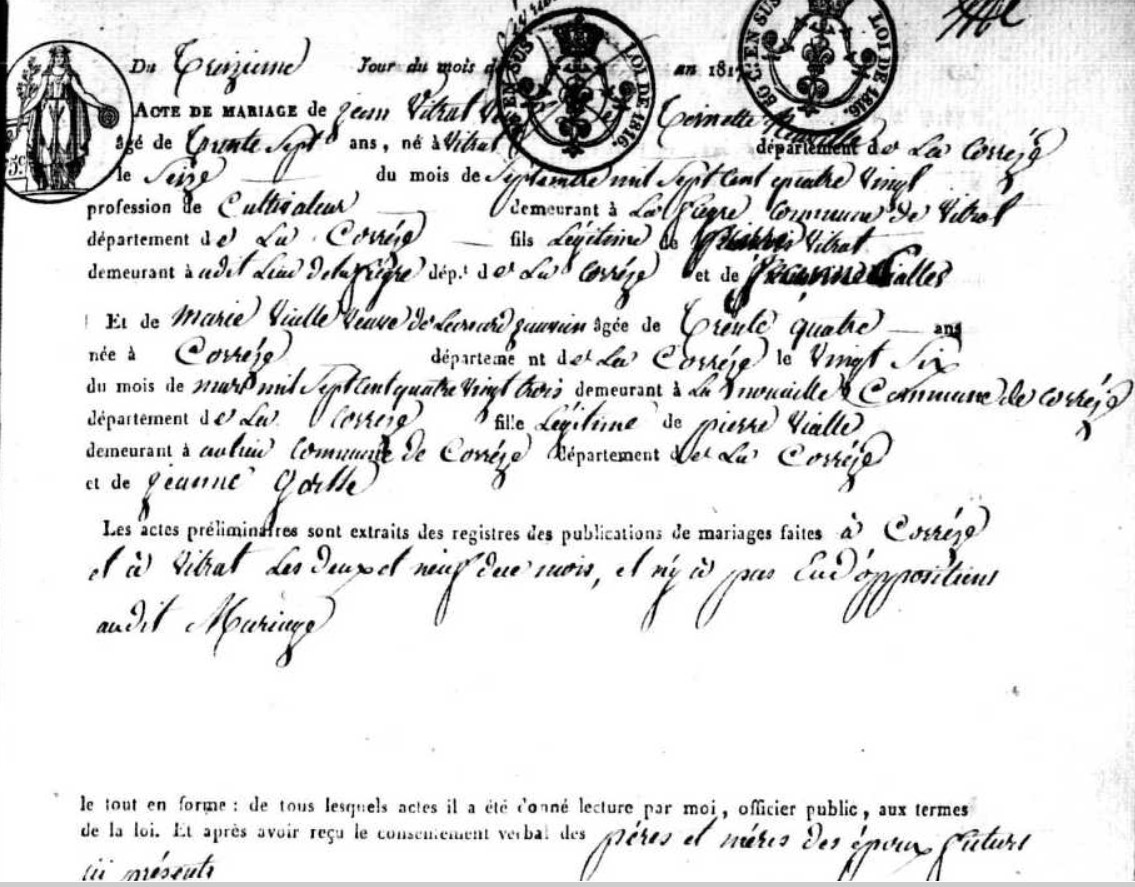 Du Treizieme Jour du mois d février an 1817
EN SUS LOI DE 1816.
50 C. EN SUS LOI DE 1816.
5c
ACTE DE MARIAGE de jean Vitrat Teinette
âgé de trente Sept ans, né à Vitrat département de La Corrèze
le Seize du mois de Septembre mil Sept Cent quatre Vingt
profession de Cultivateur demeurant à La Commune de Vitrat
département de La Corrèze fils Légitime de Vitrat
demeurant à audit Lieu de la dép.t de La Corrèze et de Vialles
Et de marie Vialle Veuve de Leonard âgée de Trente quatre ans
née à Corrèze département de La Corrèze le Vingt Six
du mois de mars mil Sept Cent quatre Vingt trois demeurant à La nouaille Commune de Corrèze
département de La Corrèze fille Légitime de pierre Vialle
demeurant à au lieu Commune de Corrèze Département de La Corrèze
et de jeanne
Les actes préliminaires sont extraits des registres des publications de mariages faites à Corrèze
et à Vitrat Les deux et neuf du mois, et n'y à pas Eud'oppositions
audit Mariage
le tout en forme : de tous lesquels actes il a été donné lecture par moi, officier public, aux termes
de la loi. Et après avoir reçu le consentement verbal des péres et méres des époux futurs
ici présents